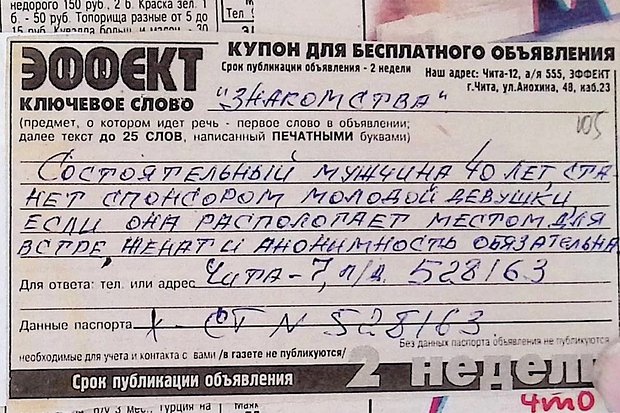 недорого 150 руб., 2 б. Краска зел. 1
б. - 50 руб. Топорища разные от 5 до
15 руб. Кувалда больш. и мален. - 30
Тел
ЭФФЕКТ
КЛЮЧЕВОЕ СЛОВО
КУПОН ДЛЯ БЕСПЛАТНОГО ОБЪЯВЛЕНИЯ
Срок публикации объявления - 2 недели
Наш адрес: Чита-12, а/я 555, ЭФФЕКТ
г.Чита, ул.Анохина, 48, каб.23
"ЗНАКОМСТВА"
105
(предмет, о котором идет речь - первое слово в объявлении;
далее текст ДО 25 СЛОВ, написанный ПЕЧАТНЫМИ буквами)
СОСТОЯТЕЛЬНЫЙ МУЖЧИНА 40 ЛЕТ, СТА
НЕТ СПОНСОРОМ МОЛОДОЙ ДЕВУШКИ,
ЕСЛИ ОНА РАСПОЛОГАЕТ МЕСТОМ ДЛЯ
ВСТРЕ, ЖЕНАТ И АНОНИМНОСТЬ ОБЯЗАТЕЛЬНА
Для ответа: тел. или адрес ЧИТА-7, п/д. 528163
Данные паспорта х - СТ N 528163
Без данных паспорта объявления не публикуются
необходимые для учета и контакта с вами /в газете не публикуются/
Срок публикации объявления 2 недели
п/у 3 мес., Турция на
что